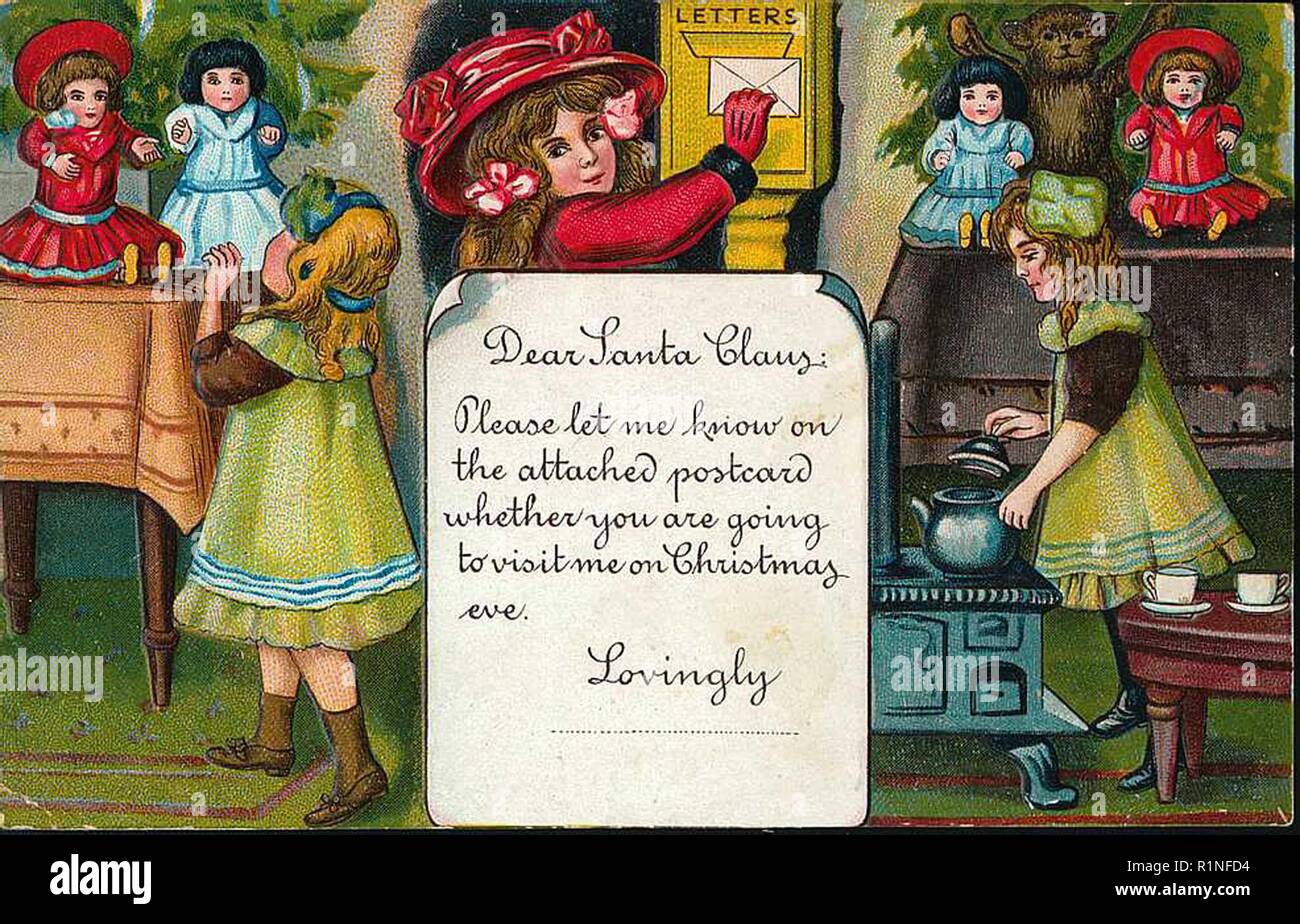 LETTERS
Dear Santa Claus:
Please let me know on
the attached postcard
whether you are going
to visit me on Christmas
eve.
Lovingly
alamy
Image ID: R1NFD4
www.alamy.com